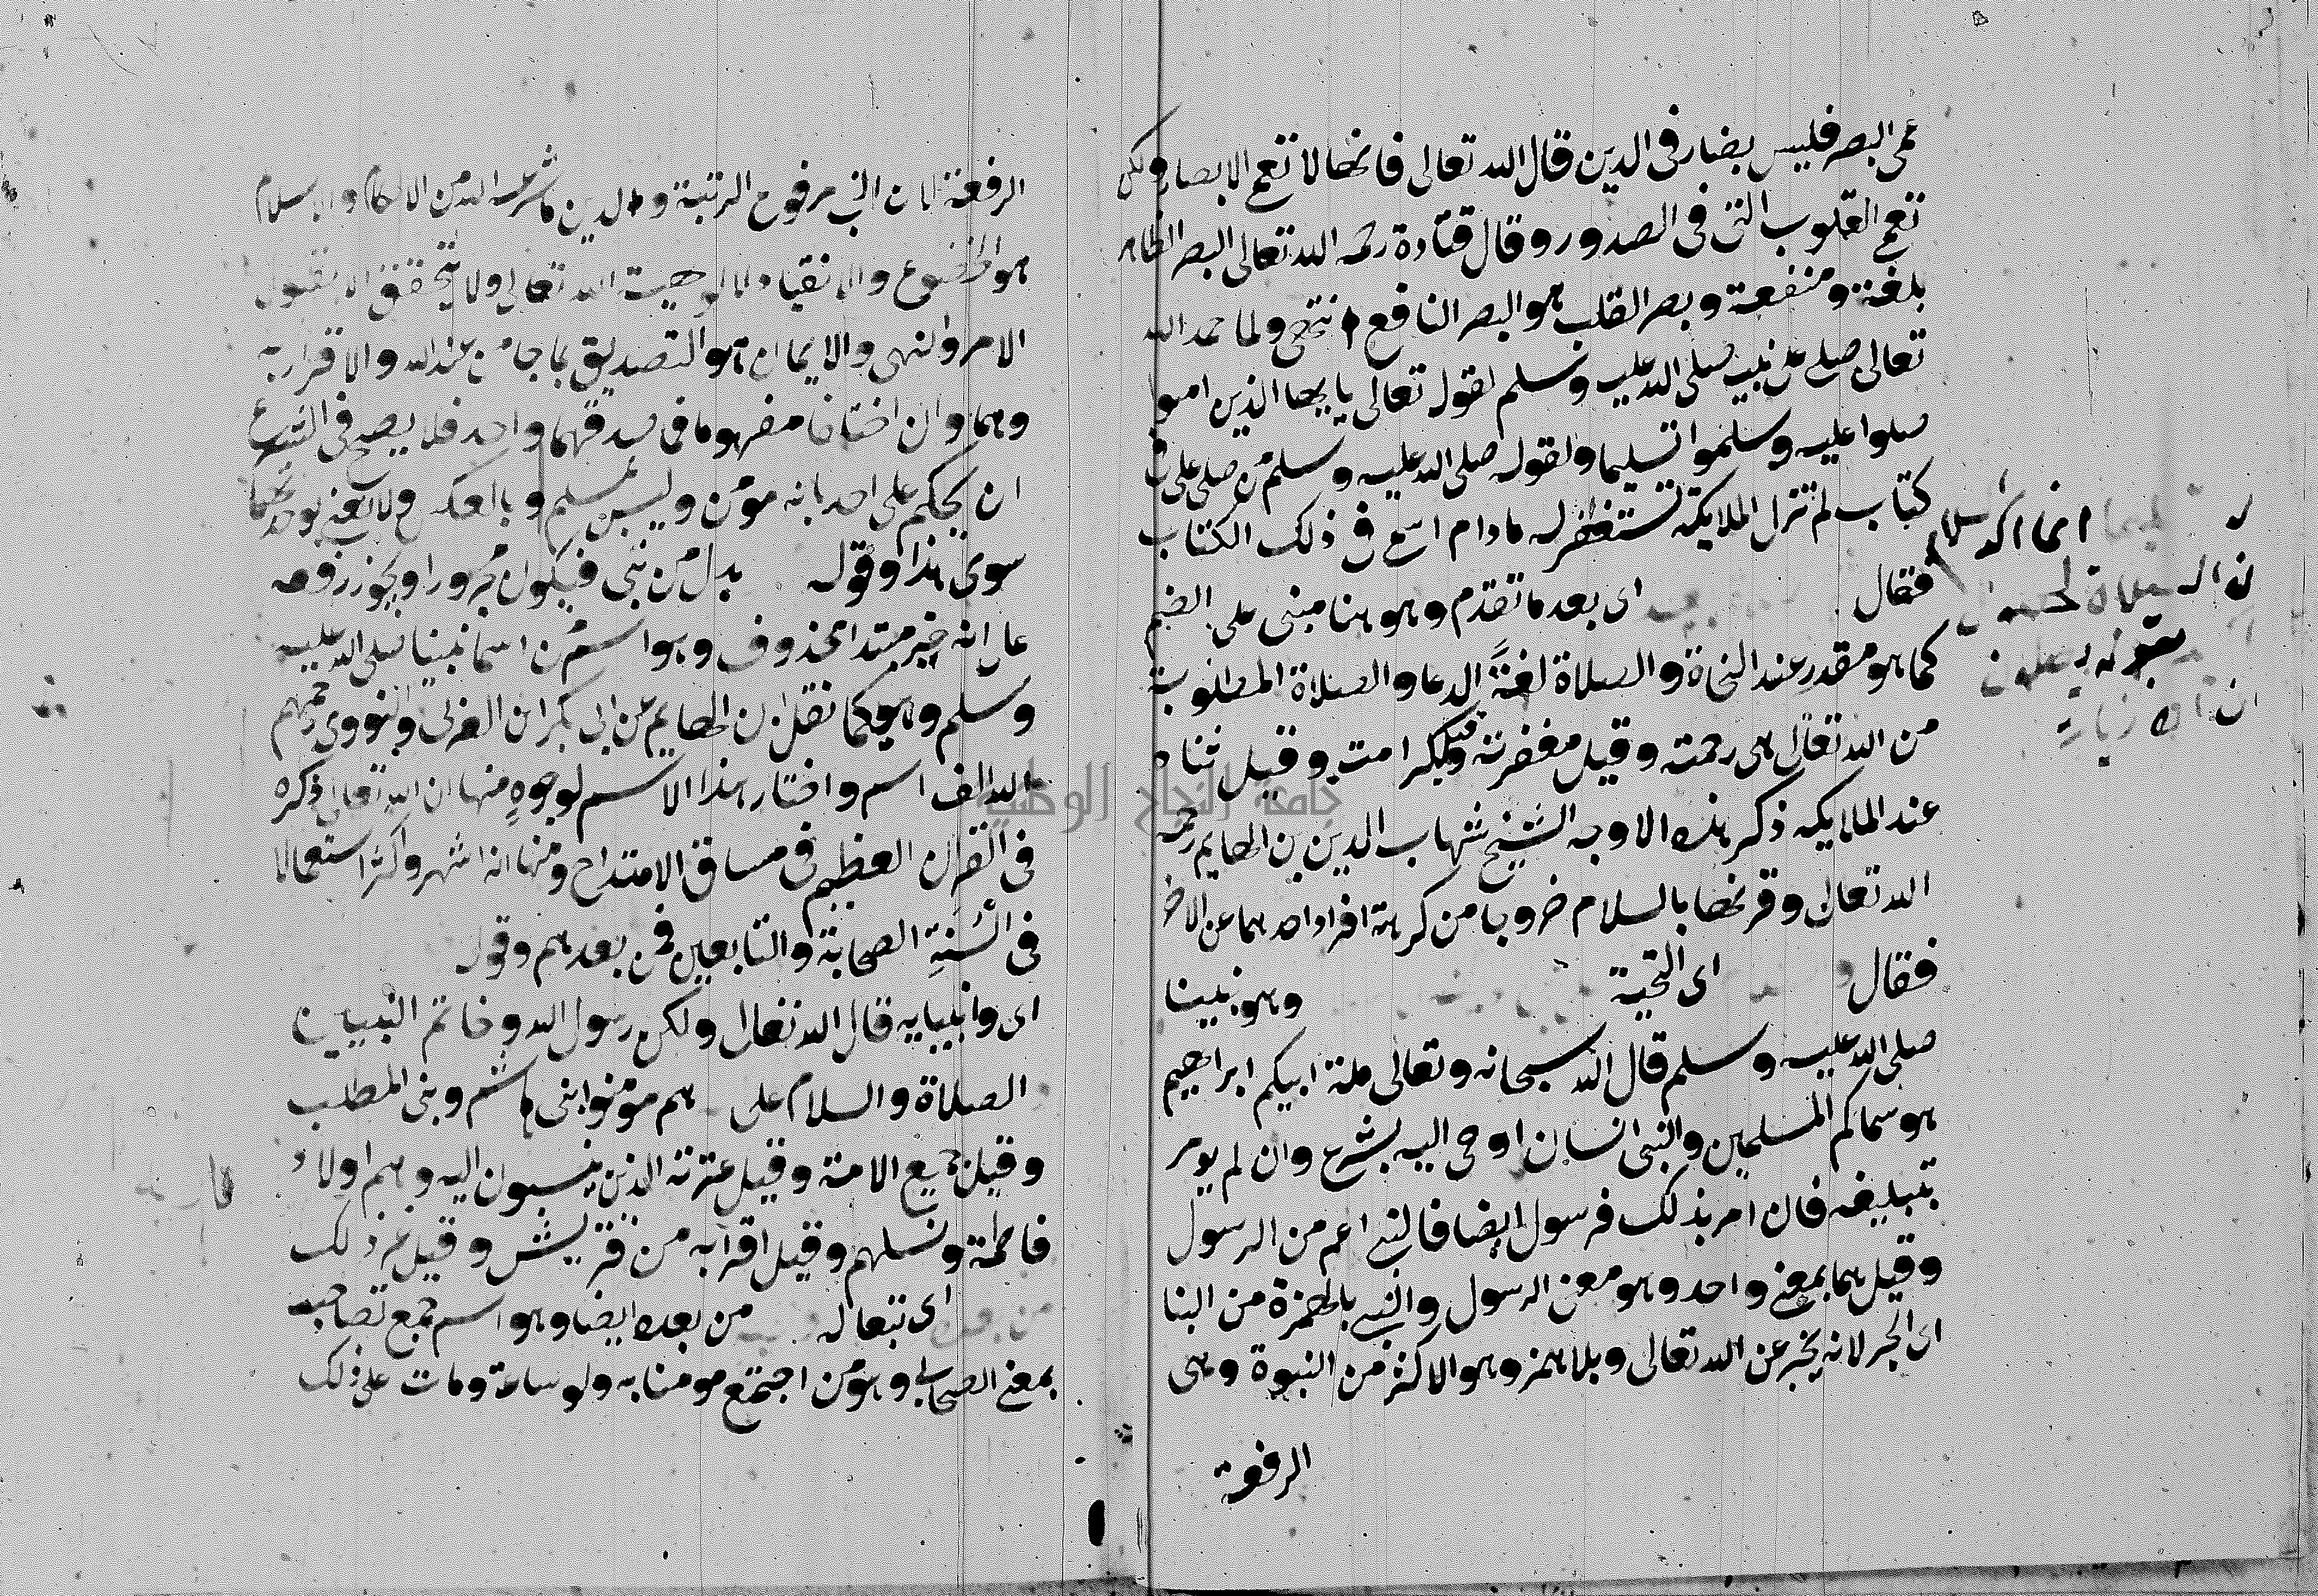 عمى البصر فليس بضار فى الدين قال الله تعالى فانها لا تعمى الابصار ولكن
تعمى القلوب التى فى الصدور وقال قتادة رحمه الله تعالى البصر الظاهر
بلغة ومنفعة وبصر القلب هو البصر النافع انتهى ولما حمد الله
تعالى صلى على نبيه صلى الله عليه وسلم لقوله تعالى يا ايها الذين امنوا
صلوا عليه وسلموا تسليما ولقوله صلى الله عليه وسلم من صلى على فى
كتاب لم تزل الملايكة تستغفر له ما دام اسمى فى ذلك الكتاب
فقال اى بعد ما تقدم وهو هنا مبنى على الضم
كما هو مقدر عند النحاة والصلاة لغةً الدعا والصلاة المطلوبة
من الله تعالى هى رحمته وقيل مغفرته وقيل كرامته وقيل ثناه
عند الملايكه ذكر هذه الاوجه الشيخ شهاب الدين بن الهايم رحمه
الله تعالى وقرنها بالسلام خروجا من كرهة افراد احدهما عن الاخر
فقال اى التحية وهو نبينا
صلى الله عليه وسلم قال الله سبحانه وتعالى ملة ابيكم ابراهيم
هو سماكم المسلمين والنبى انسان اوحى اليه بشرع وان لم يومر
بتبليغه فان امر بذلك فرسول ايضا فالنبى اعم من الرسول
وقيل هما بمعنى واحد وهو معنى الرسول والنبى بالهمزة من النبا
اى الخبر لانه يخبر عن الله تعالى وبلا همز وهو الاكثر من النبوة وهى
الرفعة
انما السلام
الصلاة
الرفعة لان النبى مرفوع الرتبة والدين ما شرعه الله من الاحكام والاسلام
هو الخضوع والانقياد لالوهيت الله تعالى ولا يتحقق الا بقبول
الامر والنهى والايمان هو التصديق بما جا من عند الله والاقرار به
وهما وان اختلفا مفهوما فى صدقهما واحد فلا يصح فى الشرع
ان يحكم على احد بانه مؤمن وليس بمسلم وبالعكس ولا نعنى بوحدتهما
سوى هذا وقوله بدل من نبى فيكون مجرورا ويجوز رفعه
على انه خبر مبتدا محذوف وهو اسم من اسما نبينا صلى الله عليه
وسلم وهو كما نقل ابن الهايم عن ابى بكر ابن العربى والنووى رحمهم
الله الف اسم واختار هذا الاسم لوجوهٍ منها ان الله تعالى ذكره
فى القران العظيم فى مساق الامتداح ومنها انه اشهر واكثر استعمالا
فى السنةِ الصحابة والتابعين فمن بعدهم وقوله
اى وانبيايه قال الله تعالى ولكن رسول الله وخاتم النبيين
الصلاة والسلام على هم مؤمنوا بنى هاشم وبنى المطلب
وقيل جميع الامة وقيل عترته الذين ينسبون اليه وهم اولاد
فاطمة ونسلهم وقيل اقرابه من قريش وقيل غير ذلك
من بعده اى تبعا له من بعده ايضا وهو اسم جمع لصاحب
بمعنى الصحابى وهو من اجتمع مومنا به ولو ساعة ومات على ذلك
جامعة النجاح الوطنية